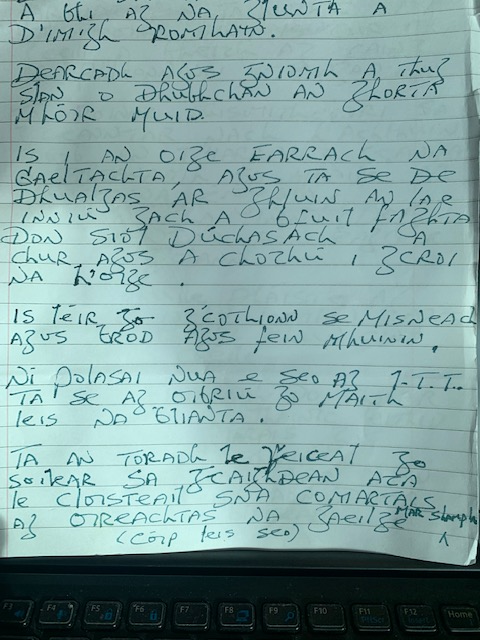 A bhí AG NA GLÚNTA A
D'IMIGH ROMHAINN.
DEARCADH AGUS GNIOMH A THUG
SLAN O DHUBHCHAN AN GHORTA
MHÓIR MUID.
IS I AN OIGE EARRACH NA
GAELTACHTA, AGUS TA SE DE
DHUALGAS AR GHLUIN AN LAE
INNIU GACH A BFUIL FAGHTA
DON SIOL DÚCHASACH A
CHUR AGUS A CHOTHÚ I GCROI
NA H'OIGE.
IS LÉIR GO GCOTHIONN SE MISNEACH
AGUS TROD AGUS FEIN MHUININ.
NI POLASAI NUA E SEO AG I.T.T.
TA SE AG OIBRIU GO MAITH
LEIS NA BLIANTA.
TA AN TORADH LE FEICEAL GO
SOILEAR SA GCAIGHDEAN ATA
LE CLOISTEAIL SNA COMARTAIS
AG OIREACHTAS NA GAEILGE MAR shampla
(CÓIP LEIS SEO)
F3 F4 F5 F6 F7 F8 F9 F10 F11 F12 Home